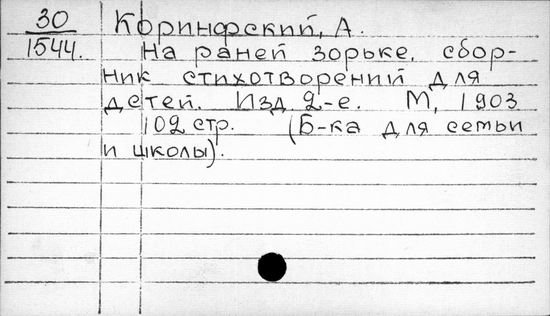 30 Коринфский, А.
1544. На раней зорьке. сбор-
ник стихотворений для
детей. Изд. 2-е. М, 1903
102 стр. (Б-ка для семьи
и школы).